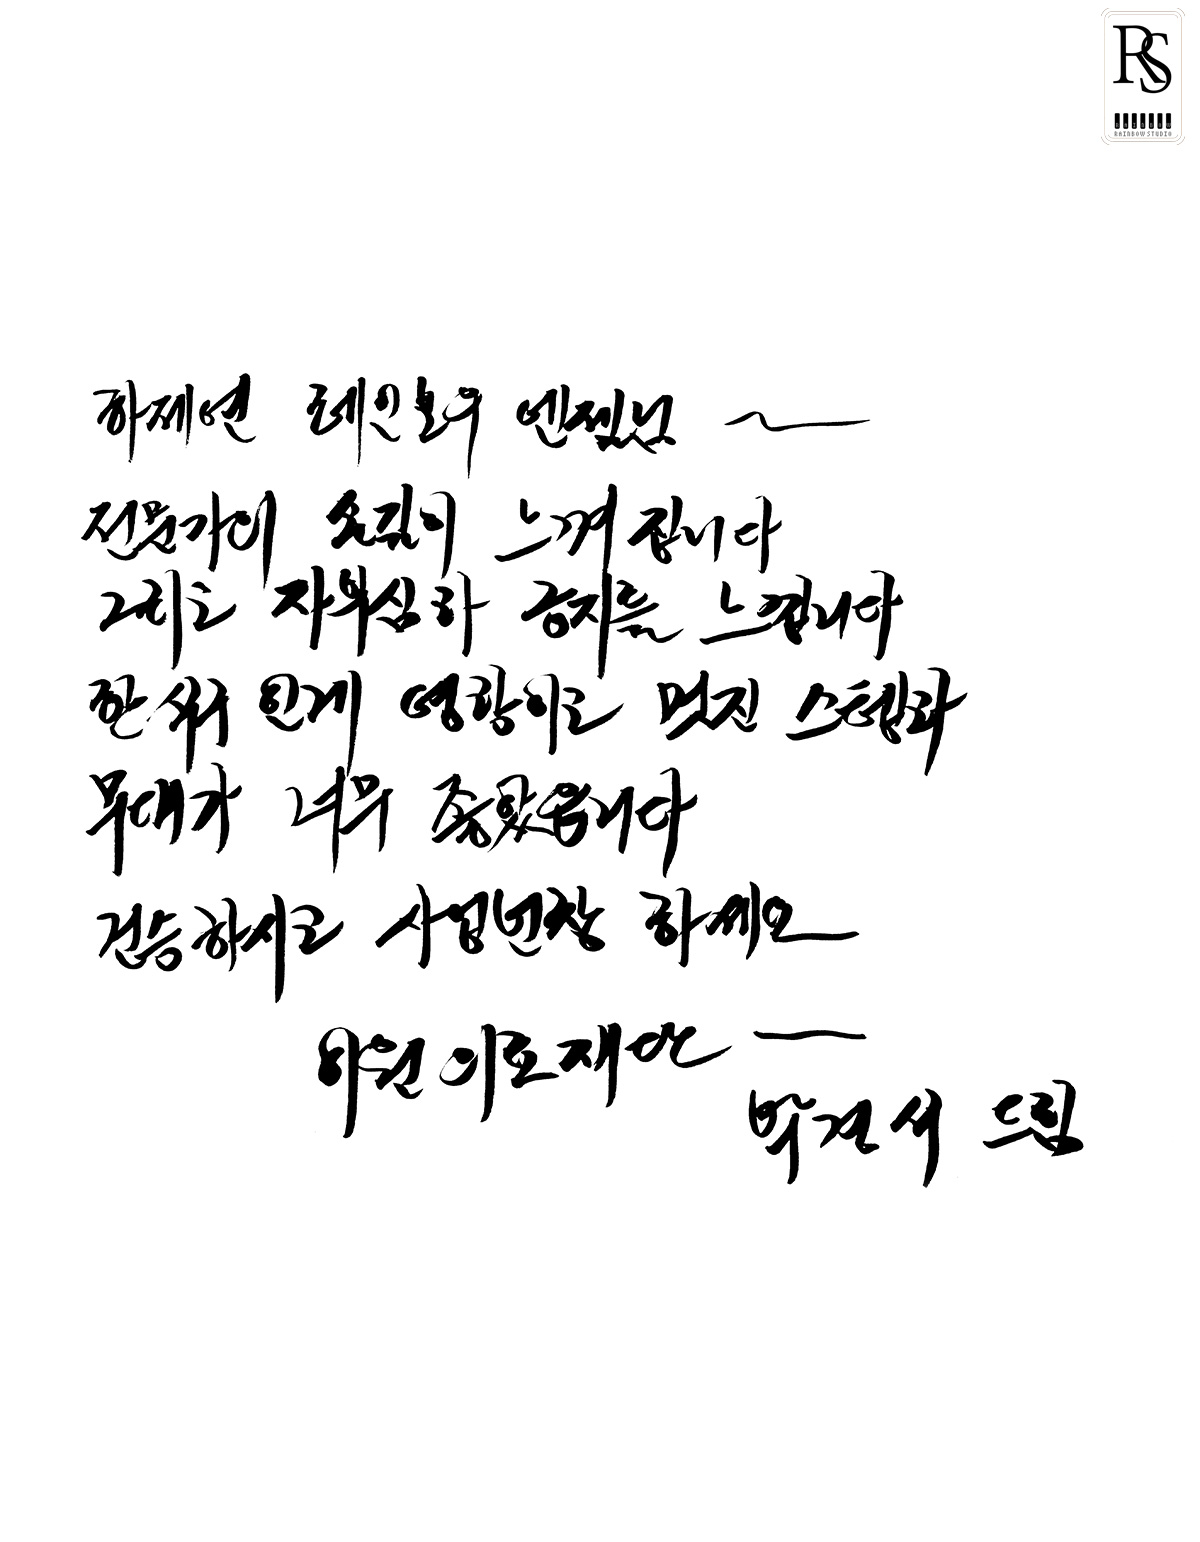 RS
RAINBOW STUDIO
하제연 레인보우 엔젤님 ~
전문가의 손길이 느껴집니다
그리고 자부심과 긍지를 느낍니다
한석규 인게 영광이고 멋진 스텝과
무대가 너무 좋았읍니다
건승하시고 사업번창 하세요
의료재단 —
박건서 드림